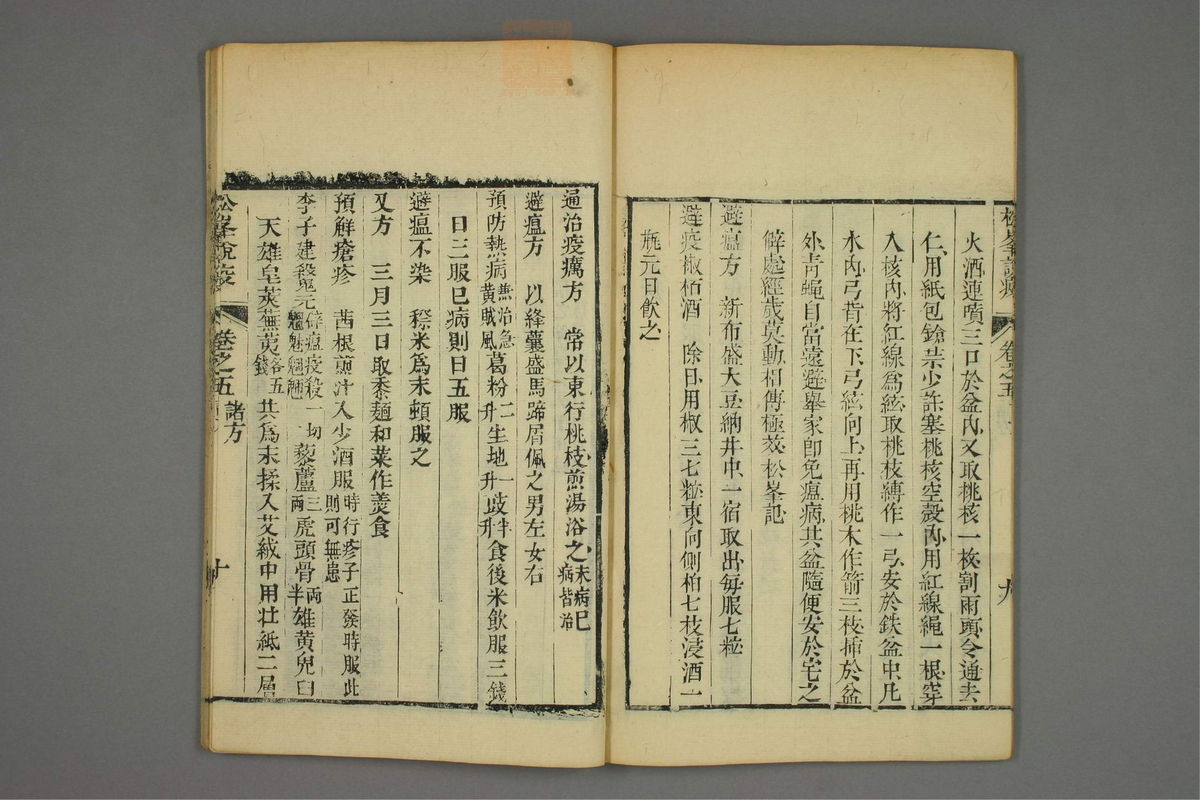 松峯說疫 卷之五 九
火酒連噴三口於盆內又取桃核一枚割兩頭令通去
仁用紙包鎗藥少許塞桃核空殼內用紅線繩一根穿
入核內將紅線爲絃取桃枝縛作一弓安於鉄盆中凡
水內弓背在下弓絃向上再用桃木作箭三枝揷於盆
外青蠅自當遠避舉家卽免瘟病其盆隨便安於宅之
僻處經歲莫動相傳極效松峯記
避瘟方　新布盛大豆納井中一宿取出每服七粒
避疫椒栢酒　除日用椒三七粒東向側柏七枝浸酒一
瓶元日飲之
通治疫癘方　常以東行桃枝煎湯浴之未病已病皆治
避瘟方　以絳囊盛馬蹄屑佩之男左女右
預防熱病兼治急黃賊風葛粉二升生地一升豉半升食後米飲服三錢
日三服已病則日五服
避瘟不染　稷米爲末頓服之
又方　三月三日取黍麯和菜作羮食
預解瘡疹　茜根煎汁入少酒服時行疹子正發時服此則可無患
李子建殺鬼元辟瘟疫殺一切魑魅魍魎藜蘆三兩虎頭骨兩半雄黃皃臼
天雄皂莢蕪荑各五錢共爲末揉入艾絨中用壯紙二層
松峯說疫 卷之五 諸方 十